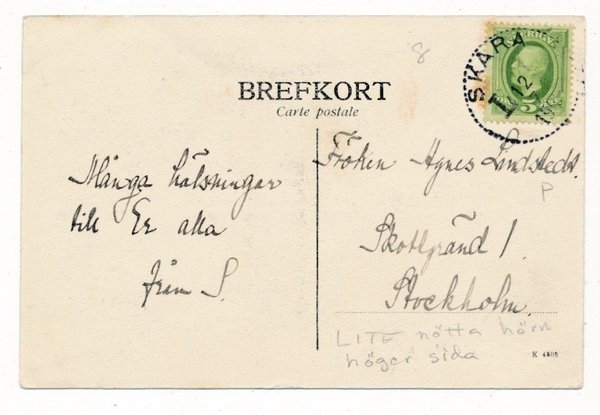 8
BREFKORT
Carte postale
SKARA
12
5
Många hälsningar
till Er alla
från S.
Fröken Agnes Lindstedt.
P
Skottgränd 1.
Stockholm.
LITE nötta hörn
höger sida